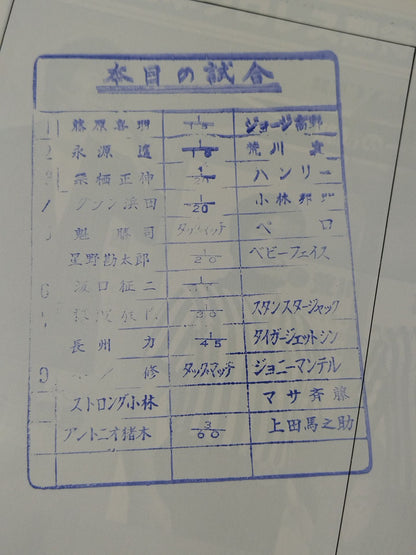 本日の試合
1 藤原喜明 1/15 ジョージ高野
2 永源遙 1/15 荒川真
3 栗栖正伸 ハンリー
浜田 1/20 小林邦
魁勝司 タッグマッチ ペロ
星野勘太郎 1/20 ベビーフェイス
6 坂口征二
1/30 スタンスタージャック
長州力 1/45 タイガージェットシン
9 修 タッグマッチ ジョニーマンテル
ストロング小林 マサ斉藤
アントニオ猪木 3/60 上田馬之助